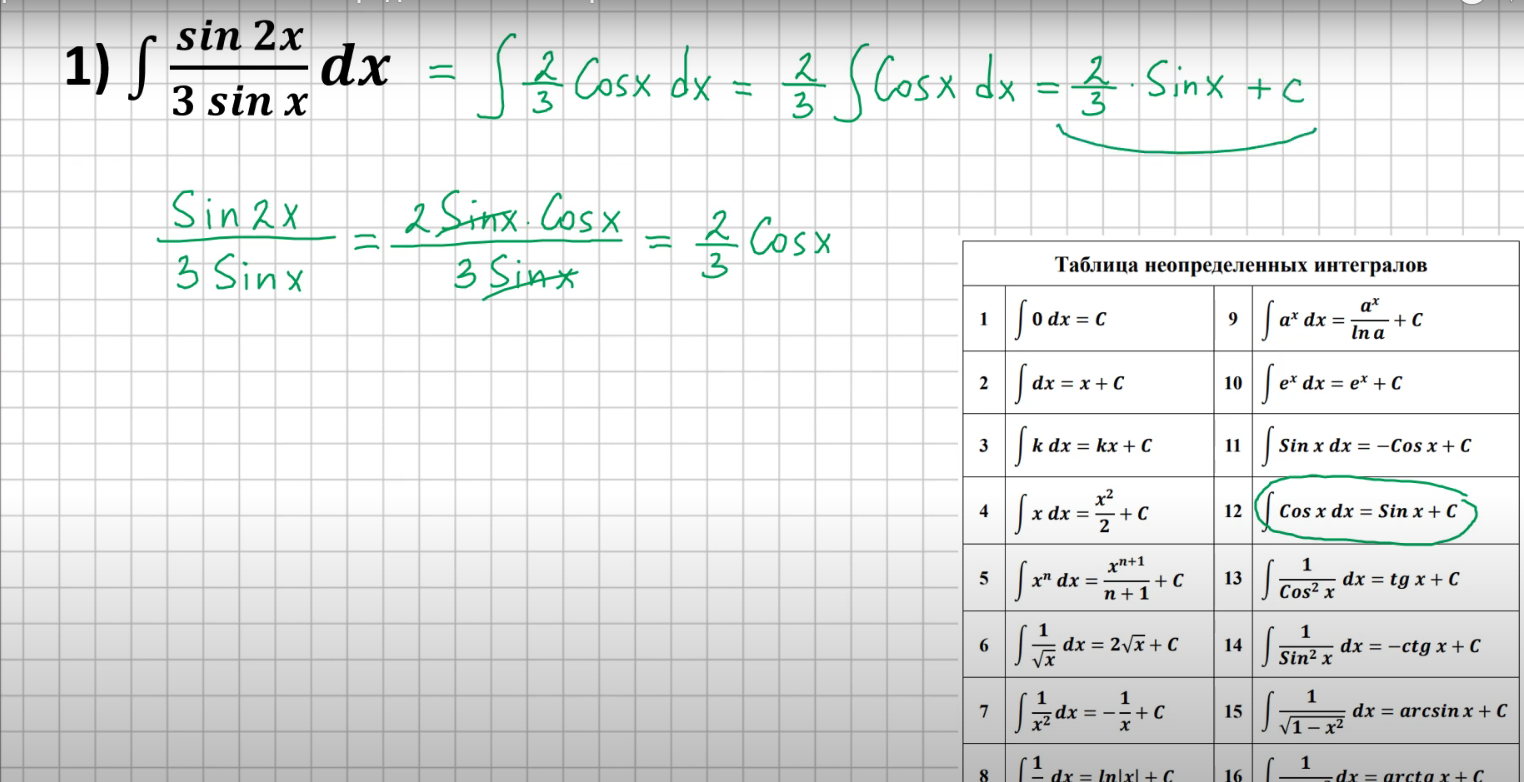 1) ∫ sin 2x / 3 sin x dx = ∫ 2/3 Cosx dx = 2/3 ∫ Cosx dx = 2/3 · Sinx + C
Sin2x / 3 Sinx = 2 Sinx · Cosx / 3 Sinx = 2/3 Cosx
Таблица неопределенных интегралов
1 ∫ 0 dx = C
9 ∫ aˣ dx = aˣ / ln a + C
2 ∫ dx = x + C
10 ∫ eˣ dx = eˣ + C
3 ∫ k dx = kx + C
11 ∫ Sin x dx = −Cos x + C
4 ∫ x dx = x² / 2 + C
12 ∫ Cos x dx = Sin x + C
5 ∫ xⁿ dx = xⁿ⁺¹ / n + 1 + C
13 ∫ 1 / Cos² x dx = tg x + C
6 ∫ 1 / √x dx = 2√x + C
14 ∫ 1 / Sin² x dx = −ctg x + C
7 ∫ 1 / x² dx = − 1 / x + C
15 ∫ 1 / √(1 − x²) dx = arcsin x + C
8 ∫ 1 dx = ln|x| + C
16 ∫ 1 dx = arctg x + C